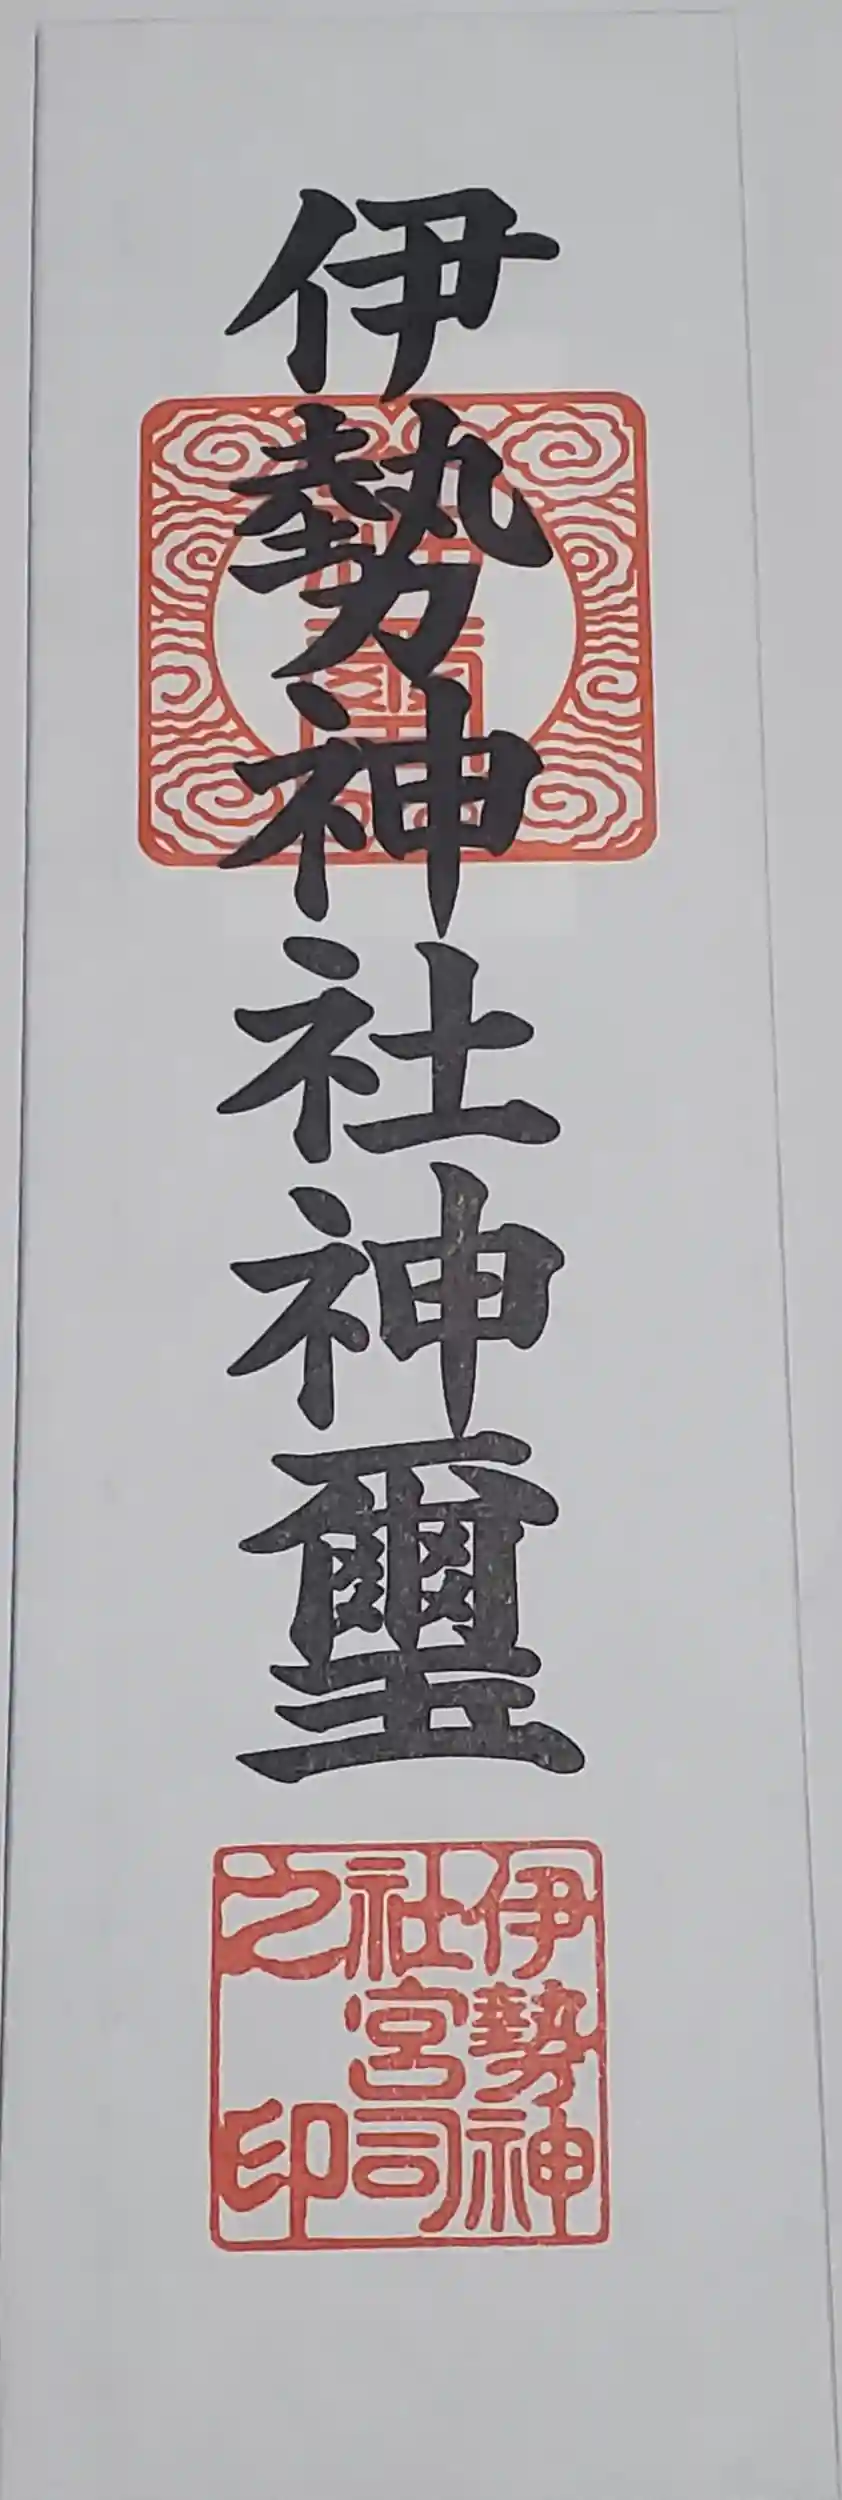 伊勢神社神璽
伊勢神
社宮司
之印